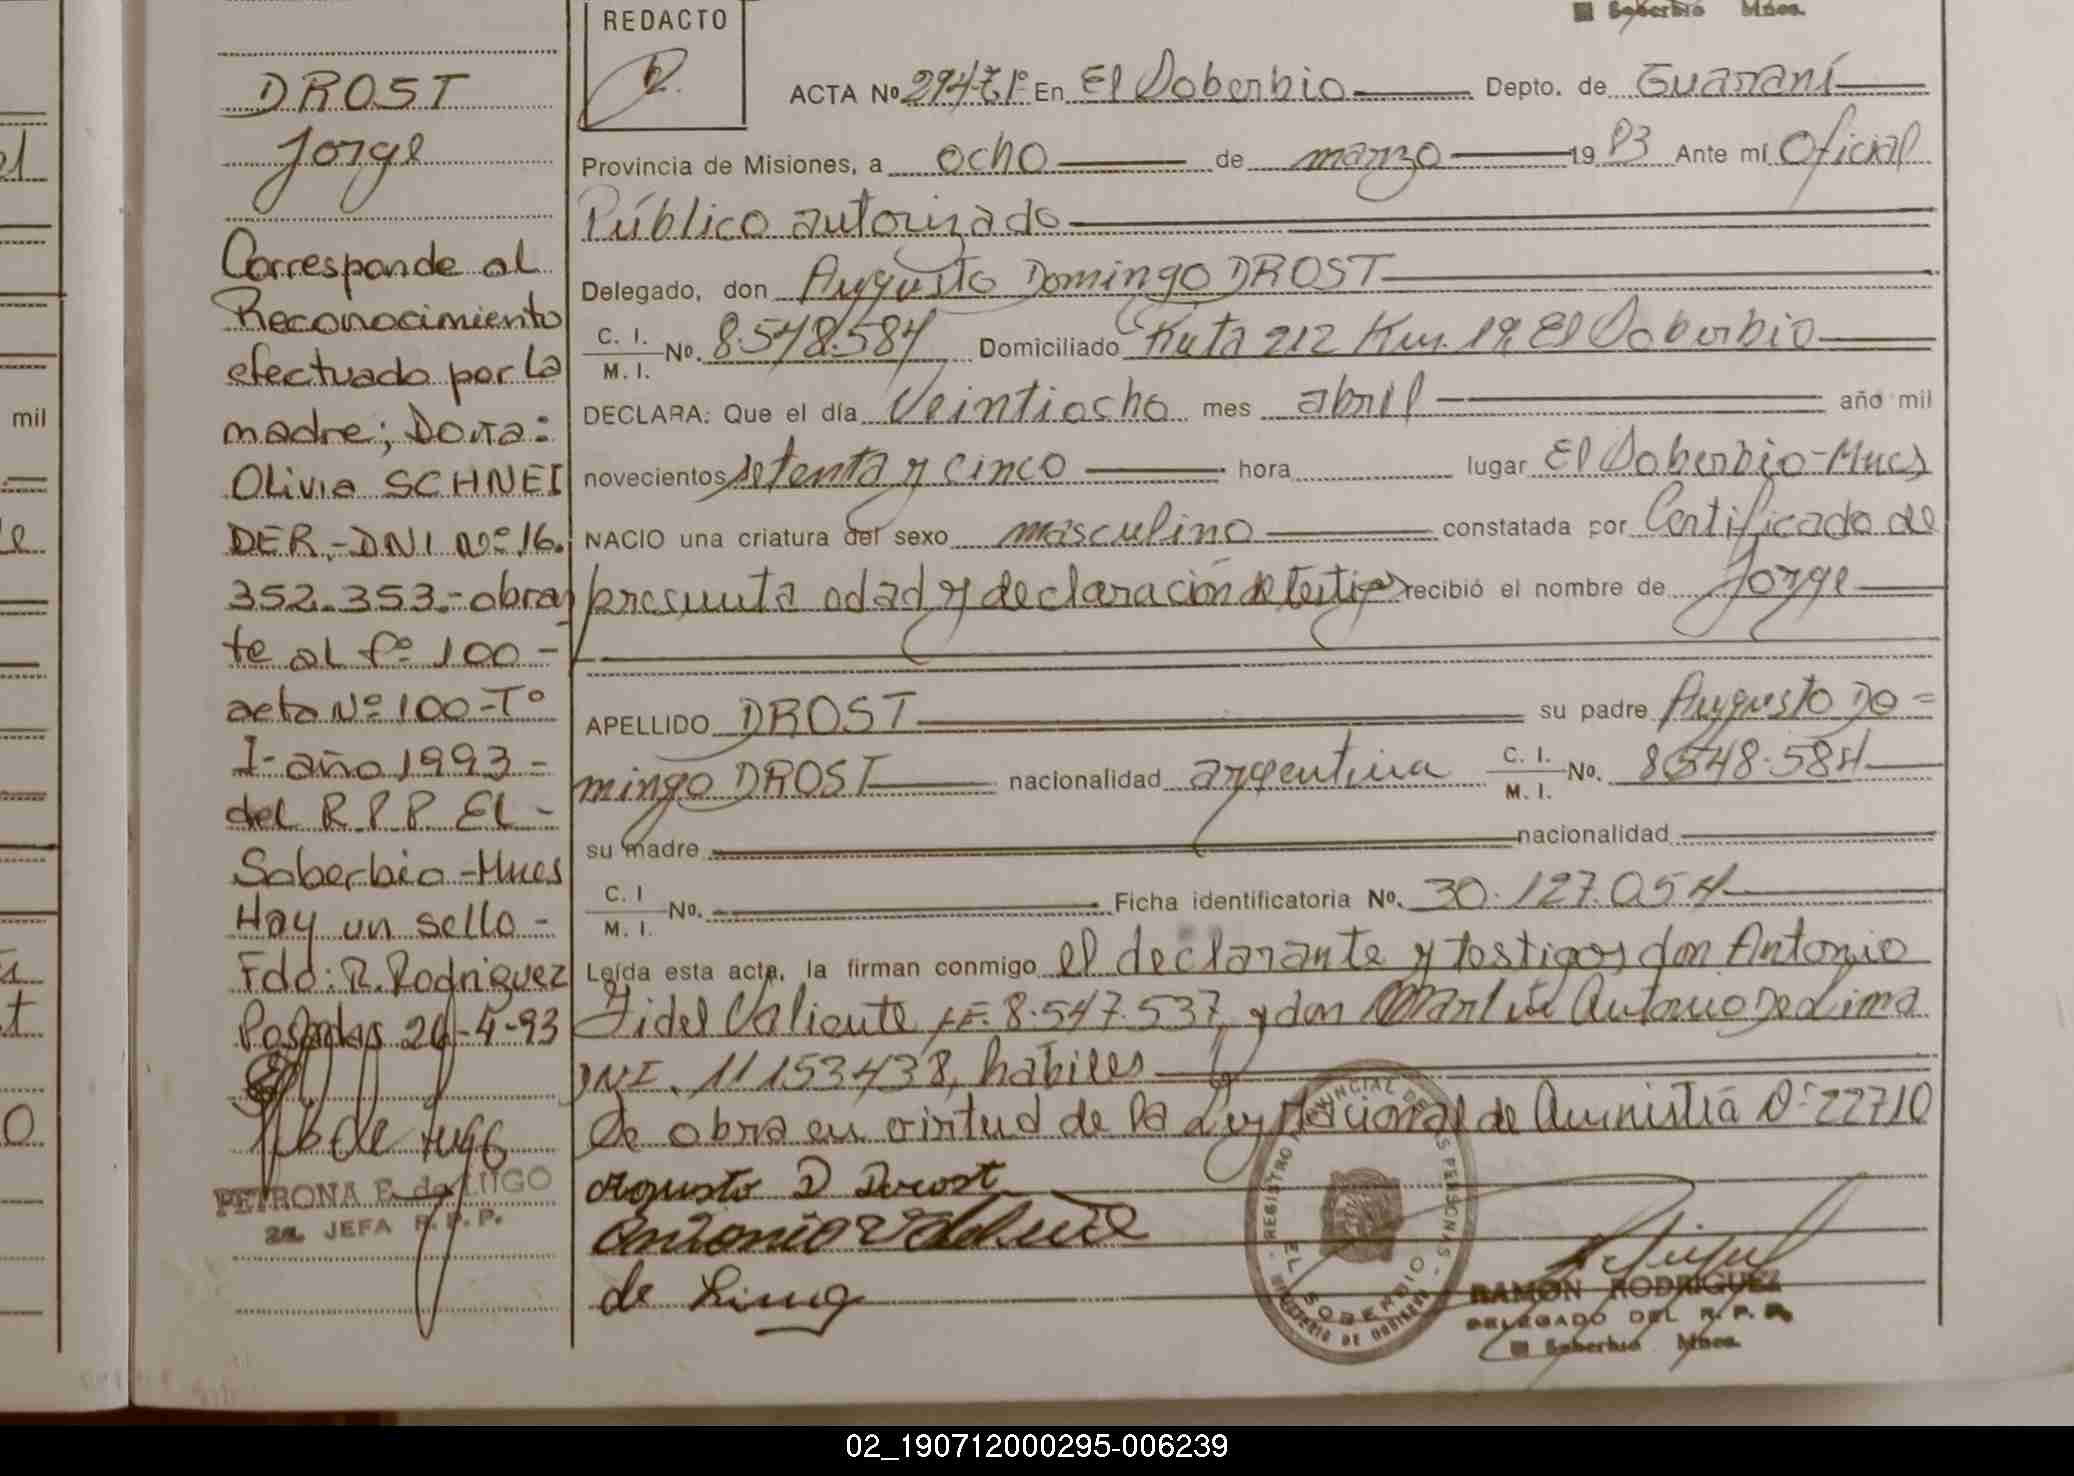 El Soberbio Mnes.
DROST
Jorge
Corresponde al
Reconocimiento
efectuado por la
madre; Doña:
Olivia SCHNEI
DER.-DNI Nº 16.
352.353.- obran
te al fº 100-
acta Nº 100-Tº
I-año 1993-
del R.P.P. El-
Soberbio-Mnes
Hay un sello-
Fdo: R. Rodriguez
Posadas 20-4-93
PETRONA B. de LUGO
2a. JEFA R.P.P.
REDACTO
ACTA Nº 294-T1º En El Soberbio Depto. de Guaraní
Provincia de Misiones, a ocho de marzo 19 83 Ante mí Oficial
Público autorizado
Delegado, don Augusto Domingo DROST
C. I. / M. I. No. 8.548.584 Domiciliado Ruta 212 Km. 19, El Soberbio
DECLARA: Que el día Veintiocho mes abril año mil
novecientos setenta y cinco hora lugar El Soberbio-Mnes
NACIO una criatura del sexo masculino constatada por Certificado de
presunta edad y declaración de testigos recibió el nombre de Jorge
APELLIDO DROST su padre Augusto Do=
mingo DROST nacionalidad argentina C. I. / M. I. No. 8.548.584
su madre nacionalidad
C. I / M. I. No. Ficha identificatoria No. 30.127.054
Leída esta acta, la firman conmigo el declarante y testigos don Antonio
Fidel Valiente L.E. 8.547.537, y don Martín Antonio De Lima
DNI. 11153438, hábiles
Se obra en virtud de la Ley Nacional de Amnistía Nº 22710
Agusto D Drost
Antonio Valiente
de Lima
REGISTRO PROVINCIAL DE LAS PERSONAS
EL SOBERBIO
MINISTERIO DE GOBIERNO
RAMON RODRIGUEZ
DELEGADO DEL R.P.P.
El Soberbio Mnes.
mil
02_190712000295-006239